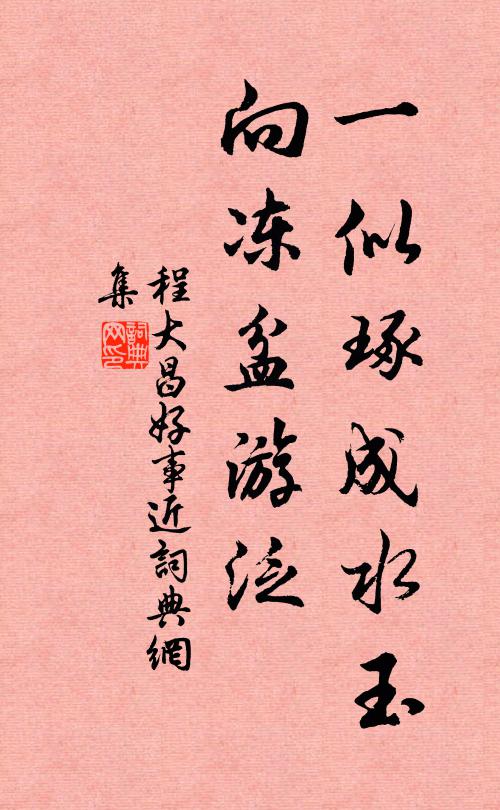 一似琢成水玉
向冻盆游泛
程大昌好事近詞典網
集
詞典
网印